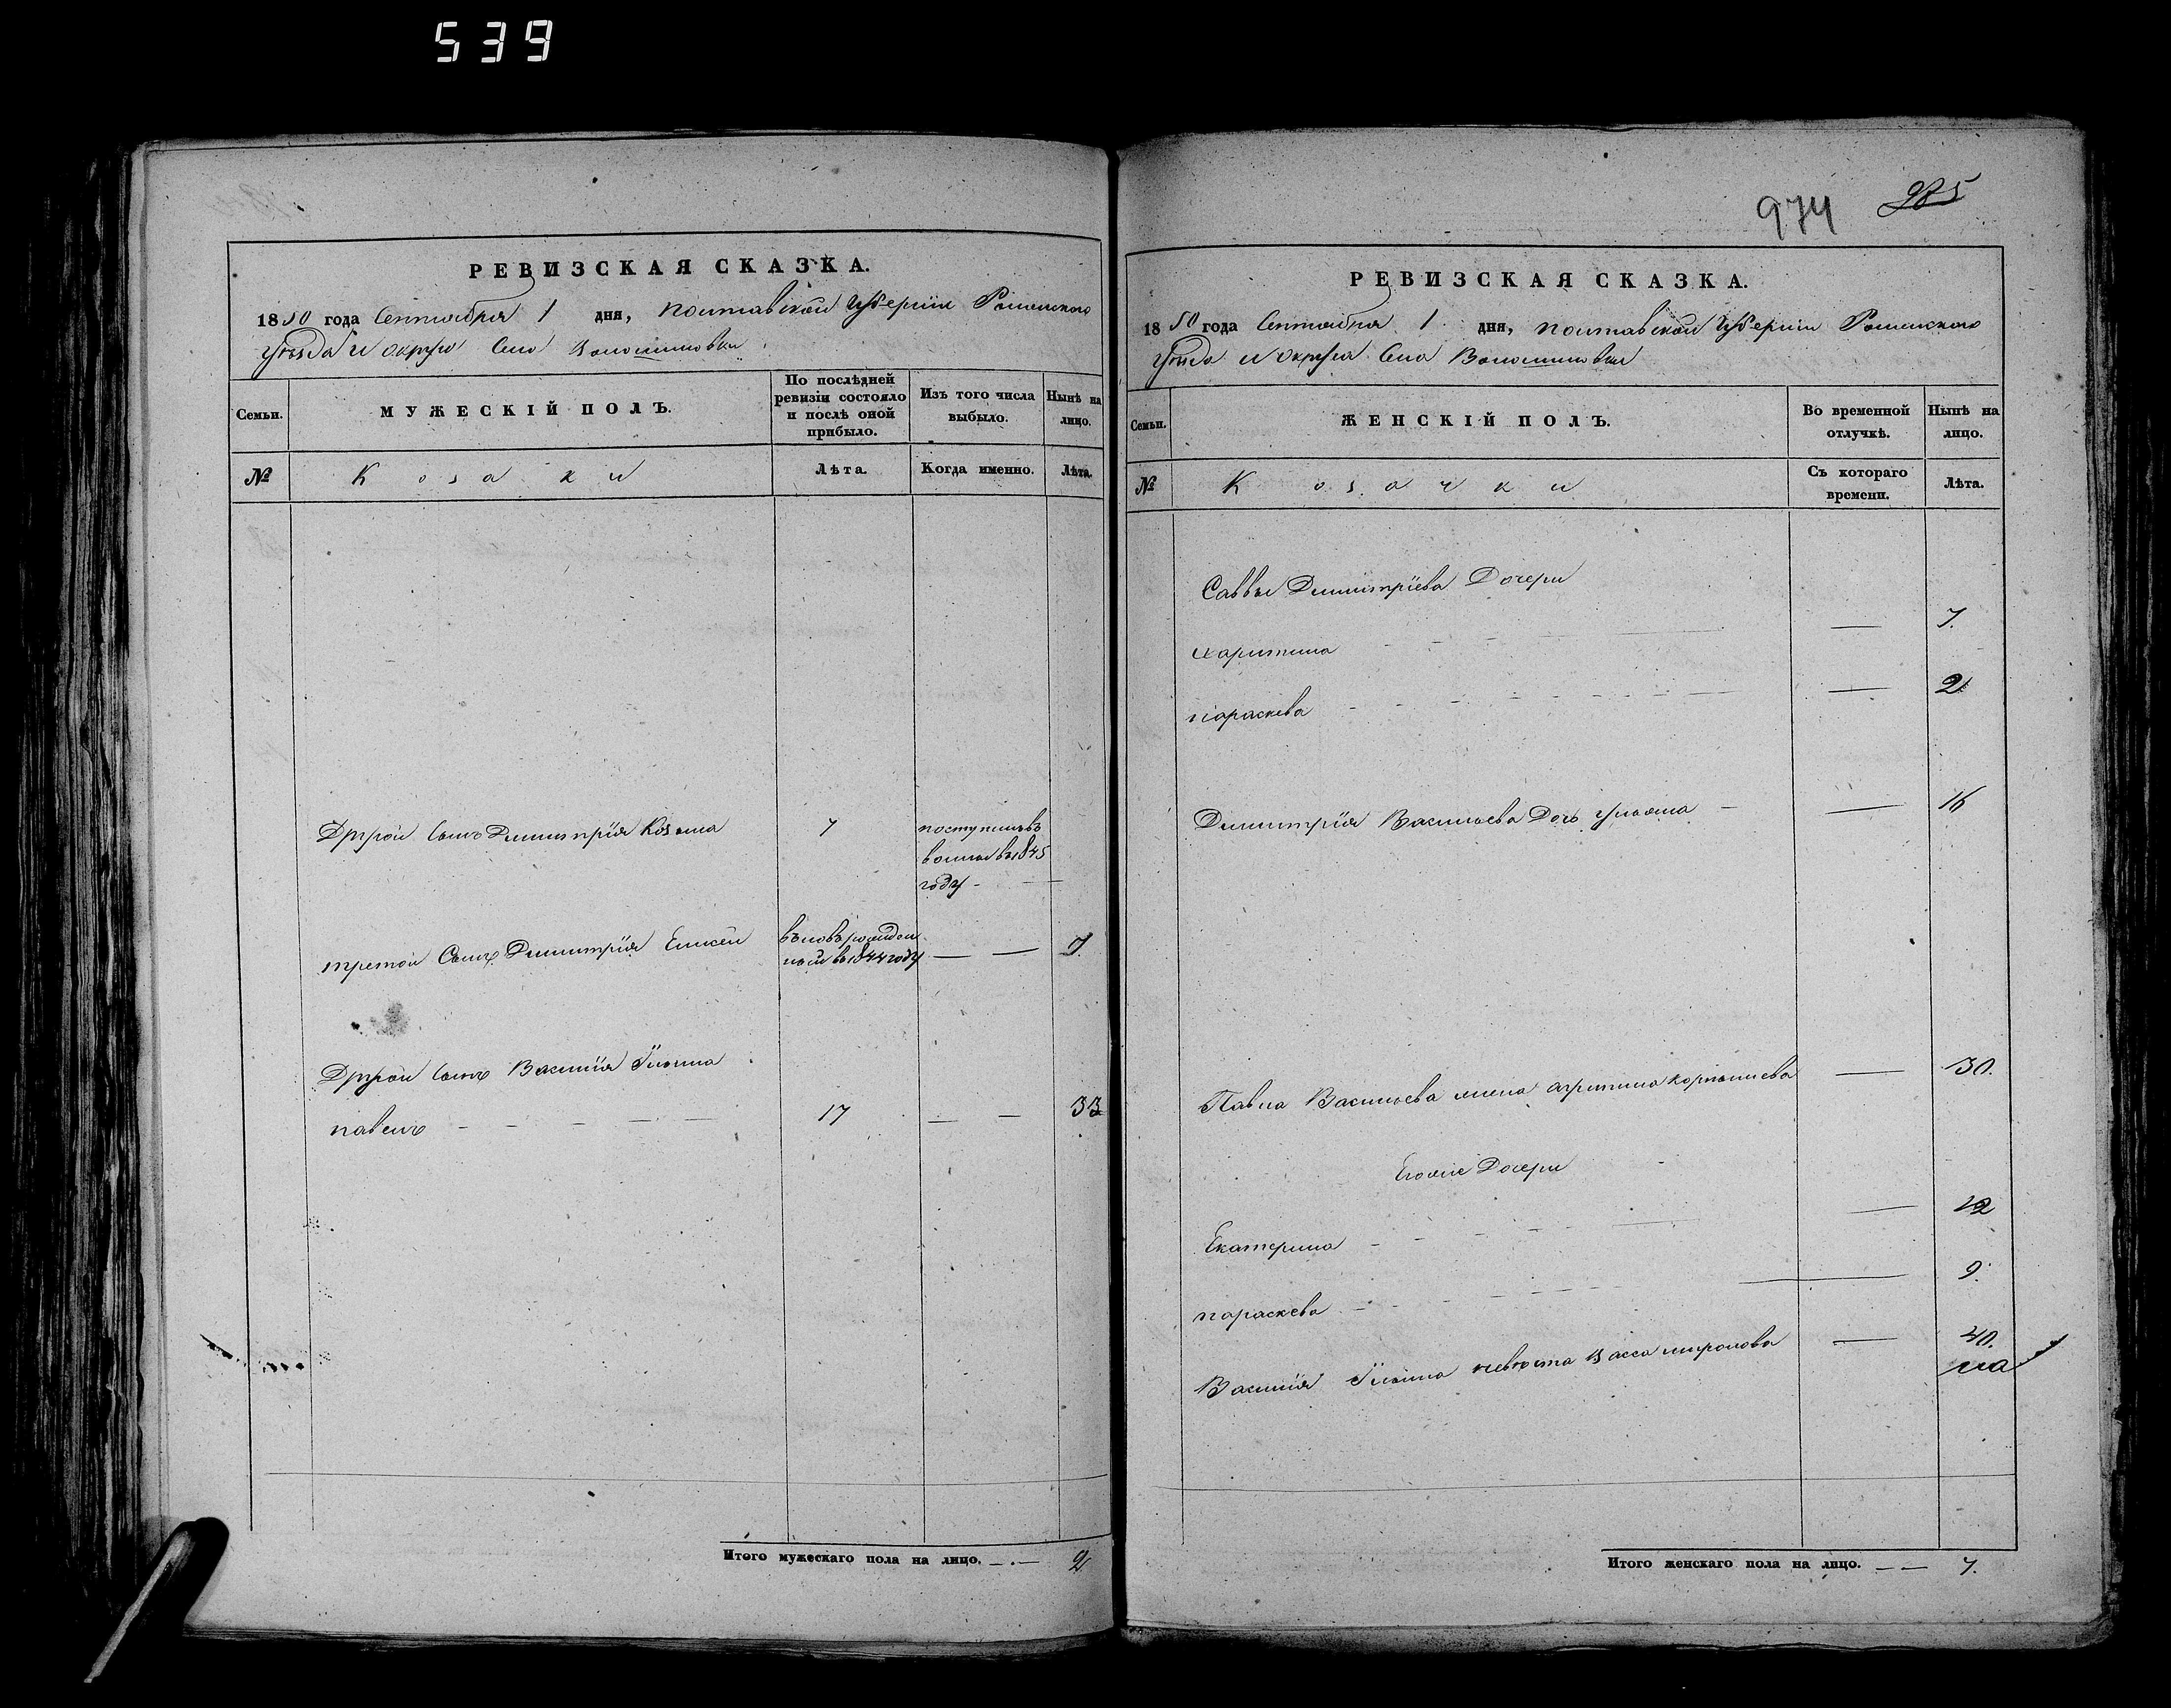 539
РЕВИЗСКАЯ СКАЗКА.
1850 года Сентября 1 дня, Полтавской Губернии Роменского
уезда и округа Села Волошиновки
Семьи.
МУЖЕСКІЙ ПОЛЪ.
По послѣдней ревизіи состояло и послѣ оной прибыло.
Изъ того числа выбыло.
Нынѣ на лицо.
№
Козаки
Лѣта.
Когда именно.
Лѣта.
Другой Сынъ Димитрія Козьма 7 поступилъ въ
въ 1845
году
третой Сынъ Димитрія Елисей въновь рожден
ный въ 1844 году 7.
Другой Сынъ Василія Ильина
павелъ 17 33
Итого мужескаго пола на лицо. 2
974 975
РЕВИЗСКАЯ СКАЗКА.
1850 года Сентября 1 дня, Полтавской Губерніи Роменского
уезда и округа Села Волошиновки
Семьи.
ЖЕНСКІЙ ПОЛЪ.
Во временной отлучкѣ.
Нынѣ на лицо.
№
Козачки
Съ котораго времени.
Лѣта.
Саввы Димитріева Дочери
харитина 7.
параскева 2
Димитрія Васильева Дочь ульяна 16
Павла Васильева жена агрипина корнѣиева 30.
Егоже Дочери
Екатерина 12
параскева 9.
Василія Ильина невѣста Васса миронова 40.
на
Итого женскаго пола на лицо. 7.